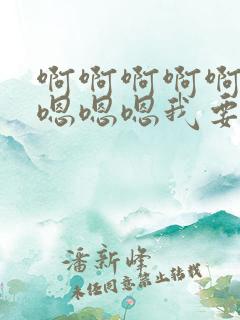 啊啊啊啊啊
嗯嗯嗯我要
潘新峰
未经同意禁止转载